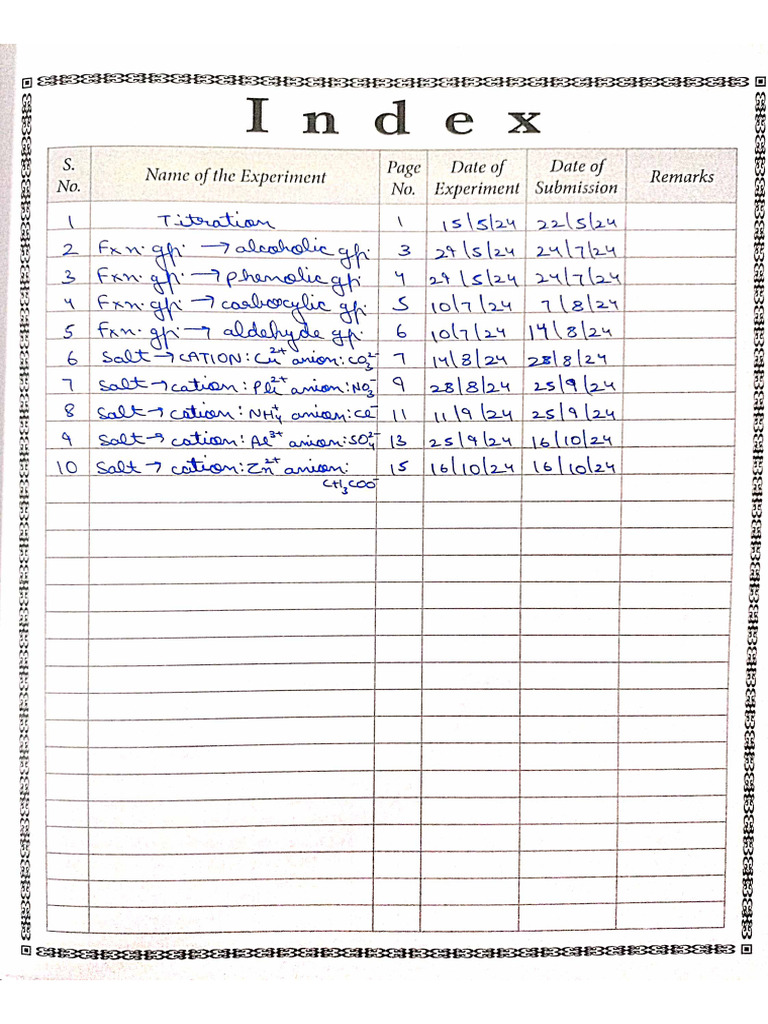 Index
S. No. Name of the Experiment Page No. Date of Experiment Date of Submission Remarks
1 Titration 1 15/5/24 22/5/24
2 Fxn. gp. → alcoholic gp. 3 29/5/24 24/7/24
3 Fxn. gp. → phenolic gp. 4 29/5/24 24/7/24
4 Fxn. gp. → carboxylic gp. 5 10/7/24 7/8/24
5 Fxn. gp. → aldehyde gp. 6 10/7/24 14/8/24
6 Salt → CATION: Cu²⁺ anion: CO₃²⁻ 7 14/8/24 28/8/24
7 Salt → cation: Pb²⁺ anion: NO₃⁻ 9 28/8/24 25/9/24
8 Salt → cation: NH₄⁺ anion: Cl⁻ 11 11/9/24 25/9/24
9 Salt → cation: Al³⁺ anion: SO₄²⁻ 13 25/9/24 16/10/24
10 Salt → cation: Zn²⁺ anion: 15 16/10/24 16/10/24
CH₃COO⁻